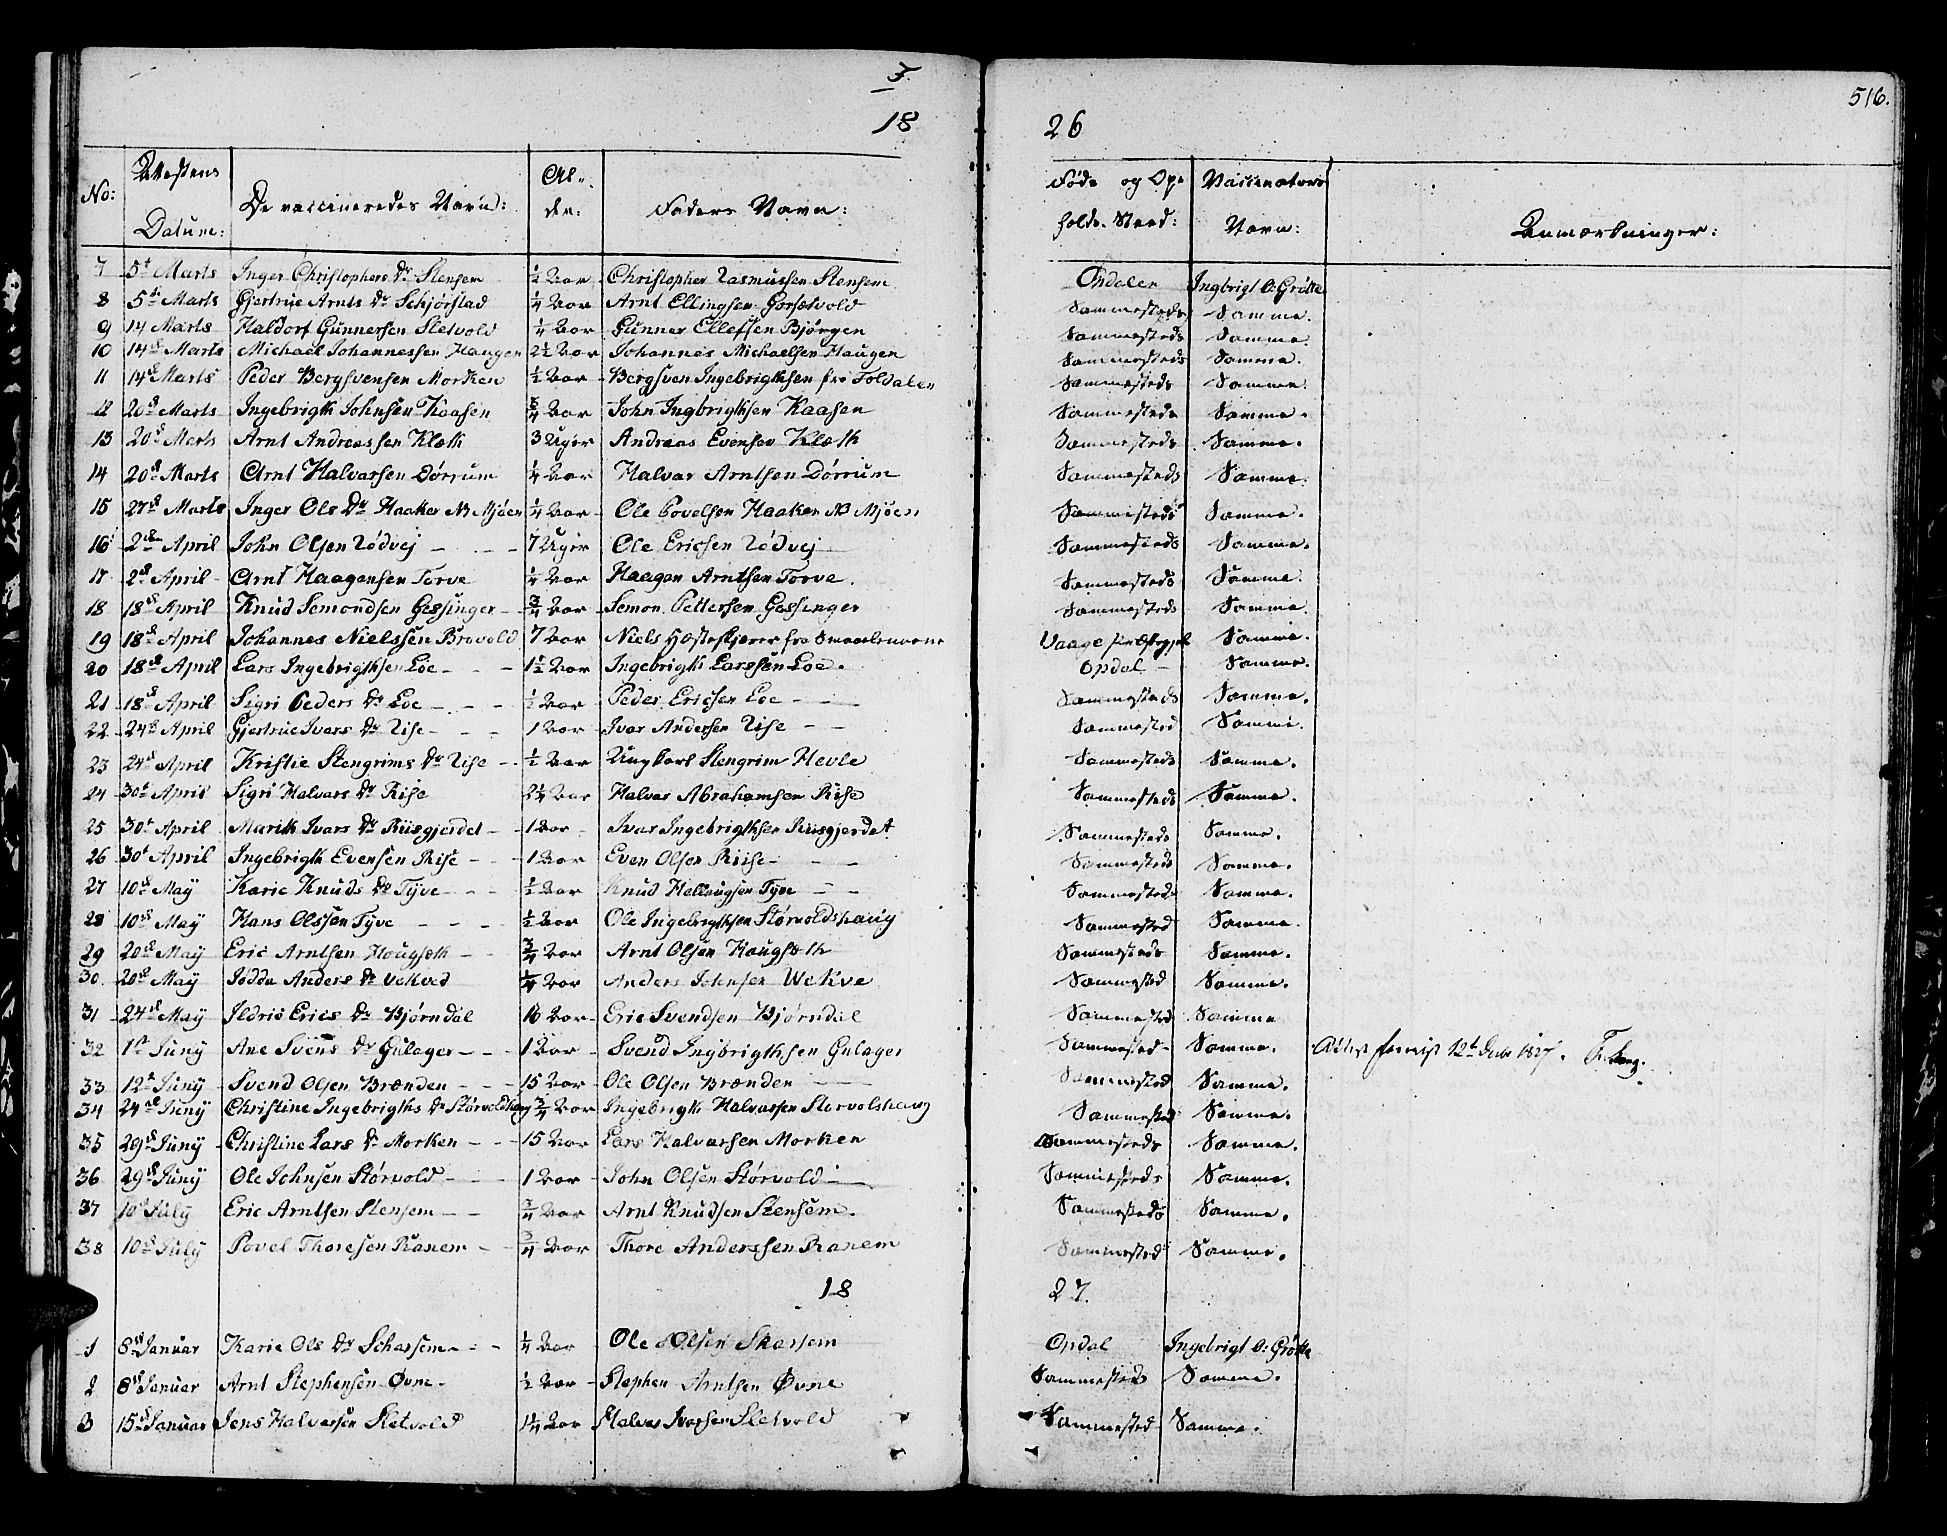 F.
516.
18 26
No: Attestens Datum: De vaccineredes Navn: Al- der: Faders Navn: Føde og Op- holds-Sted: Vaccinatørs Navn: Anmærkninger:
7 5t Marts Inger Christophers Dr Stensem ½ Aar Christopher Rasmussen Stensem Opdalen Ingbrigt O: Grötte
8 5t Marts Gjertrue Arnts Dr Sckjørstad ¼ Aar Arnt Ellingsen Gorsetvold Sammesteds Samme.
9 14 Marts Haldor Gunnersen Sletvold ¼ Aar Gunner Ellefsen Bjørgen Sammesteds Samme.
10 14de Marts Michael Johannessen Haugen 2½ Aar Johannes Michaelsen Haugen Sammesteds Samme.
11 14de Marts Peder Bergsvensen Morken ½ Aar Bergsven Ingebrigtsen fra Foldalen Sammesteds Samme.
12 20de Marts Ingebrigth Johnsen Kaasen ¾ Aar John Ingbrigthsen Kaasen Sammesteds Samme.
13 20de Marts Arnt Andreassen Klæth 3 Uger Andreas Evensen Klæth Sammesteds Samme.
14 20de Marts Arnt Halvarsen Dørrum ¼ Aar Halvar Arntsen Dörrum Sammesteds Samme.
15 27de Marts Inger Ols Dr Haaker N3 Mjöen ¼ Aar Ole Povelsen Haaken N3 Mjöen Sammesteds Samme.
16 2den April John Olsen Rödvej 7 Uger Ole Ericsen Rödvej Sammesteds Samme.
17 2de April Arnt Haagensen Torve ¼ Aar Haagen Arntsen Torve. Sammesteds Samme.
18 18de April Knud Semondsen Gessinger ¾ Aar Semon Pettersen Gessinger Sammesteds Samme.
19 18de April Johannes Nielssen Brovold 7 Aar Niels Hesteskjærer fra Smaalenene Vaage Samme.
20 18de April Lars Ingebrigthsen Loe 1½ Aar Ingebrigth Larssen Loe. Opdal Samme.
21 18de April Sigri Peders Dr Loe ½ Aar Peder Ericsen Loe Sammesteds Samme.
22 24de April Gjertrue Ivers Dr Rise 1 Aar Ivar Andersen Rise Sammested Samme.
23 24de April Kristie Stengrims Dr Rise ½ Aar Ungkarl Stengrim Hevle Sammesteds Samme.
24 30t April Sigri Halvars Dr Rise 2¼ Aar Halvar Abrahamsen Rise Sammesteds Samme.
25 30t April Marith Ivars Dr Riisgjerdet 1 Aar Ivar Ingebrigthsen Riisgjerdet Sammesteds Samme.
26 30t April Ingebrigth Evensen Rise 1 Aar Even Olsen Riise Sammesteds Samme.
27 10de May Karie Knuds Dr Tyve ½ Aar Knud Hallaugsen Tyve Sammesteds Samme.
28 10de May Hans Olssen Tyve ½ Aar Ole Ingebrigthsen Störvoldshaug Sammested Samme.
29 20de May Eric Arntsen Hougseth ¾ Aar Arnt Olsen Hougseth Sammesteds Samme.
30. 20de May Iödda Anders Dr Vekved ¼ Aar Anders Johnsen Wekve Sammested Samme.
31 24de May Ildrid Erics Dr Bjørndal 10 Aar Eric Svendsen Bjørndal Sammested Samme
32 1t Juny Ane Svens Dr Gulager 1 Aar Svend Ingbrigthsen Gulager Sammested Samme. 12t 1827.
33 12t Juny Svend Olsen Brænden 15 Aar Ole Olsen Brænden Sammested Samme.
34 24de Juny Christine Ingebrigths Dr Störvoldhaug ¾ Aar Ingebrigth Halvarsen Storvolshaug Sammested Samme.
35 29de Juny Christine Lars Dr Morken 15 Aar Lars Halvarsen Morken Sammesteds Samme.
36 29de Juny Ole Johnsen Störvold 1 Aar John Olsen Störvold Sammesteds Samme.
37 10de July Eric Arntsen Stensem ¾ Aar Arnt Knudsen Stensem. Sammesteds Samme.
38 10de July Povel Thoresen Ranem ¾ Aar Thore Anderssen Ranem Sammested Samme.
18 27.
1 8de Januar Karie Ols Dr Scharsem ¼ Aar Ole Olsen Skarsem Opdal Ingebrigt O: Grötte
2 8de Januar Arnt Stephensen Øvne ½ Aar Stephen Arntsen Øvne Sammested Samme.
3 15de Januar Jens Halvarsen Sletvold 1¼ Aar Halvar Ivarsen Sletvold Sammested Samme.